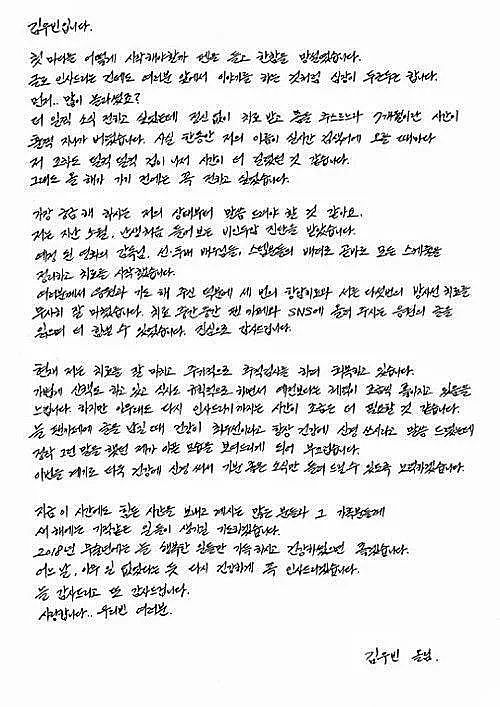 김우빈입니다.
첫 마디는 어떻게 시작해야할까 펜을 들고 한참을 망설였습니다.
글로 인사드리는 건데도 여러분 앞에서 이야기를 하는 것처럼 심장이 두근두근 합니다.
먼저.. 많이 놀라셨죠?
더 일찍 소식 전하고 싶었는데 정신없이 치료 받고 몸을 추스르느라 7개월이란 시간이
훌쩍 지나가 버렸습니다. 사실 한동안 저의 이름이 실시간 검색어에 오를 때마다
저 조차도 덜컥 덜컥 겁이 나서 시간이 더 걸렸던 것 같습니다.
그래도 올 해가 가기 전에는 꼭 전하고 싶었습니다.
가장 궁금해 하시는 저의 상태부터 말씀 드려야 할 것 같아요.
저는 지난 5월, 난생처음 들어보는 비인두암 진단을 받았습니다.
예정 된 영화의 감독님, 선·후배 배우님들, 스텝분들의 배려로 곧바로 모든 스케줄을
정리하고 치료를 시작했습니다.
여러분께서 응원과 기도 해 주신 덕분에 세 번의 항암치료와 서른 다섯번의 방사선 치료를
무사히 잘 마쳤습니다. 치료 중간중간 팬 카페와 SNS에 올려 주시는 응원의 글을
읽으며 더 힘낼 수 있었습니다. 진심으로 감사드립니다.
현재 저는 치료를 잘 마치고 주기적으로 추적검사를 하며 회복하고 있습니다.
가볍게 산책도 하고 있고 식사도 규칙적으로 하면서 예전보다는 체력이 조금씩 좋아지고 있음을
느낍니다. 하지만 아무래도 다시 인사드리기까지는 시간이 조금은 더 필요할 것 같습니다.
늘 팬카페에 글을 남길 때 건강이 최우선이라고 항상 건강에 신경 쓰시라고 말씀 드렸는데
정작 그런 말을 했던 제가 아픈 모습을 보여드리게 되어 부끄럽습니다.
이번을 계기로 더욱 건강에 신경 써서 기분 좋은 소식만 들려 드릴 수 있도록 노력하겠습니다.
지금 이 시간에도 힘든 시간을 보내고 계시는 많은 분들과 그 가족분들께
새해에는 기적같은 일들이 생기길 기도하겠습니다.
2018년 무술년에는 늘 행복한 일들만 가득하시고 건강하셨으면 좋겠습니다.
어느 날, 아무 일 없었다는 듯 다시 건강하게 꼭 인사드리겠습니다.
늘 감사드리고 또 감사드립니다.
사랑합니다.. 우리빈 여러분.
김우빈 올림.